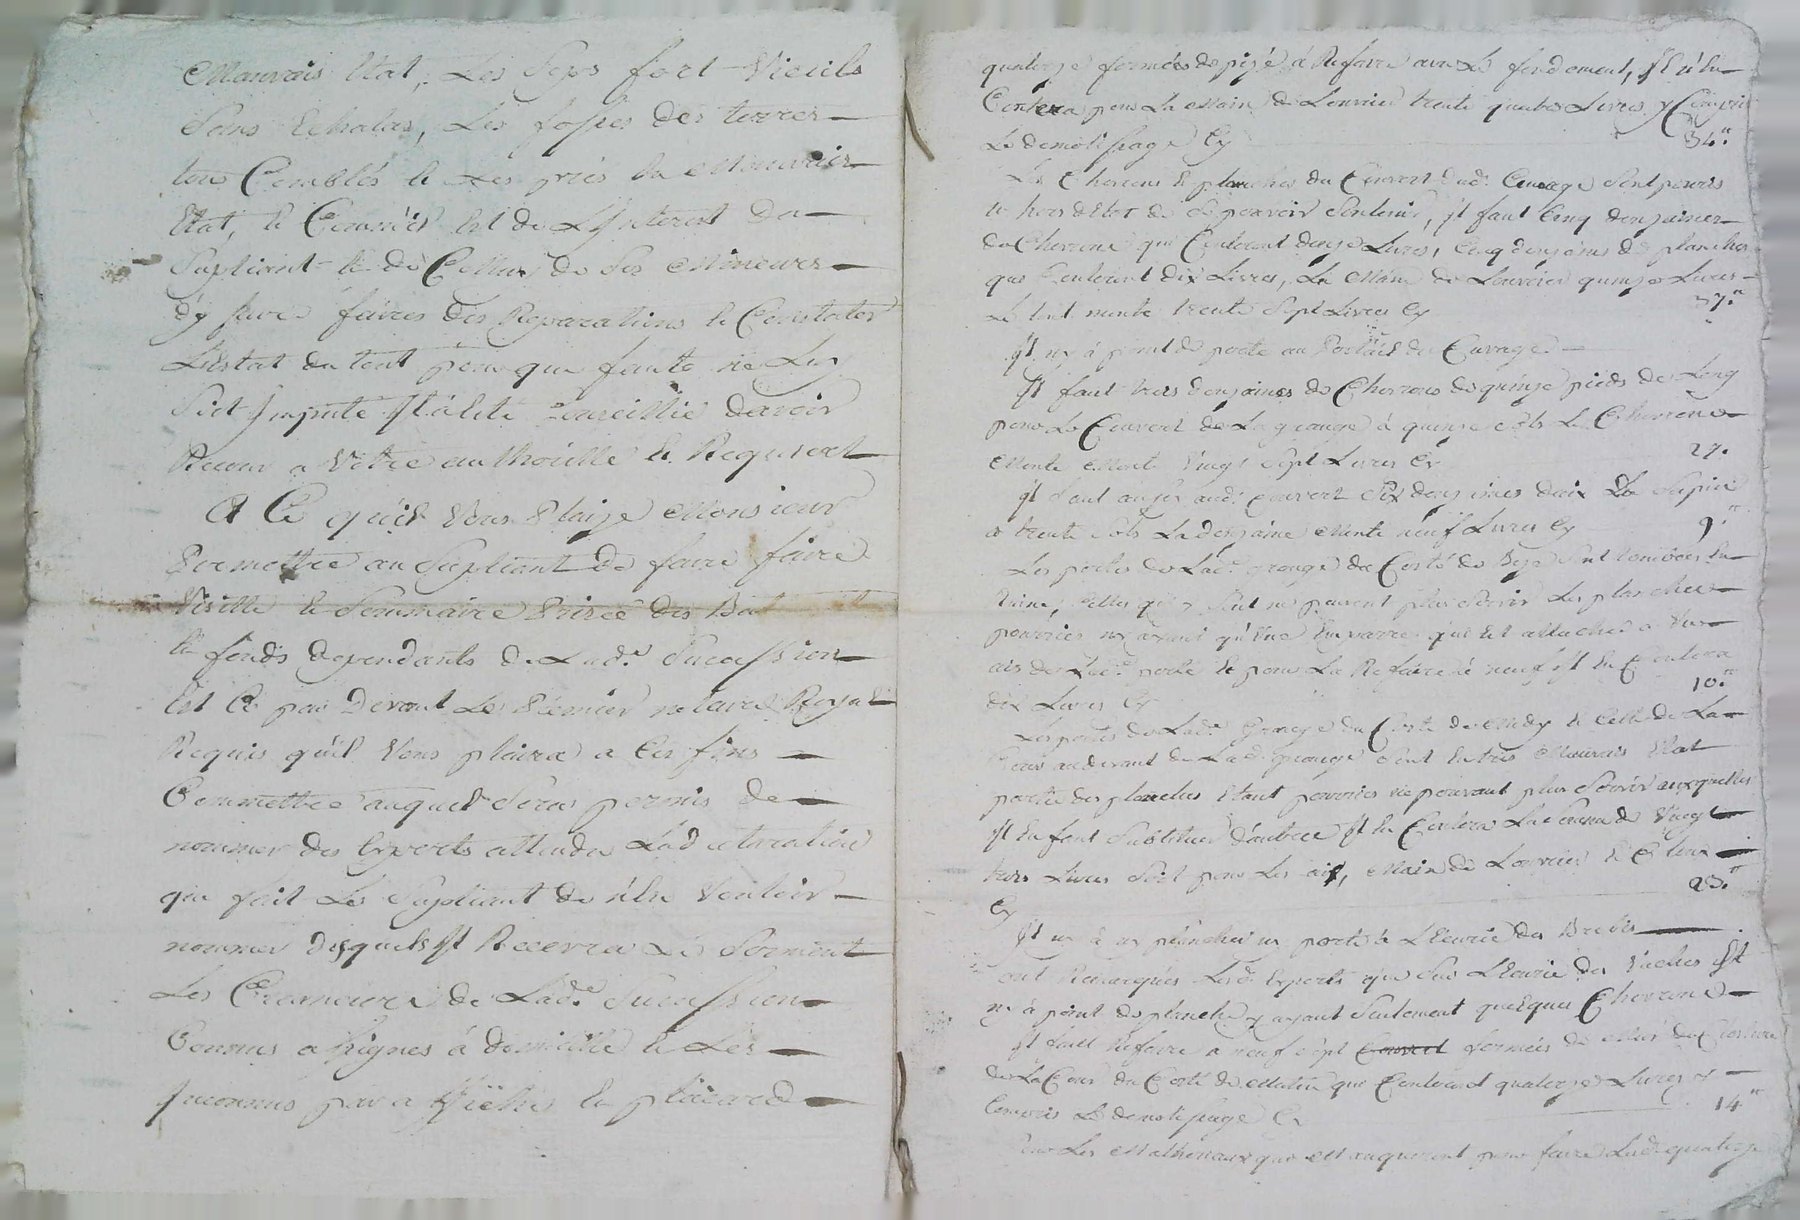 Mauvais Etat, Les Seps fort Vieuls
Sans Echalas, Les fosses des terres
tous Comblés & Les prés En Mauvais
Etat, & Comm'il Est de L'Jnterest du
Supliant & de Celluy de Ses Mineurs
d'y faire faires des Reparations & Constater
L'Estat du tout pour que faute ne Luy
Soit Jmputé Jl a Eté Conseillié davoir
Recour a Vôtre authorité & Requiert
A Ce qu'il Vous Plaize Monsieur
Permettre au Supliant de faire faire
Visitte & Sommaire Prisée des Bat
& fonds dependants de Lad.e Succession
Et Ce par Devant Le Premier notaire Royal
Requis qu'il Vous plaira a Ces fins
Commettre auquel Sera permis de
nommer des Experts attendu La declaration
que fait Le Supliant de n'En Vouloir
nommer desquels Jl Recevra Le Serment
Les Creanciers de Lad.e Succession
Connus assignés à domicille & Les
Jnconnus par affiche En placard
quatorze formées de pizé à Refaire avec Le fondement, Jl n'En
Coutera pour La Main de Louvrier trente quatre Livres y Compris
Le demolissage Cy 34."
Les Chevrons & planches du Couvert dud. Cuvage Sont pouris
& hors d'Etat de Se pouvoir Soutenir, Jl faut Cinq douzaines
de Chevrons qui Couteront douze Livres, Cinq douzaines de planches
que Couteront dix Livres, La Main de Louvrier quinze Livres
Le tout monte trente Sept Livres Cy 37."
Jl ny à point de porte au Portail du Cuvage
Jl faut trois douzaines de Chevrons de quinze pieds de Long
pour Le Couvert de La grange à quinze sols Le Chevron
Monte Vingt Sept Livres Cy 27.
Jl faut aussy aud. Couvert Six douzaines daix De Sapin
a trente Sols La douzaine Monte neuf Livres Cy 9."
Les portes de Lad. grange du Costé de Bize Sont tombées En
Ruine, Celles qui y Sont ne peuvent plus Servir Les planches
pourries ny ayant qu'Une Emparre qui Est attachée a Un
ais de Lad. porte & pour La Refaire à neuf Jl En Coutera
dix Livres Cy 10."
Les portes de Lad. Grange du Costé de Midy & Celle de La
Cour au devant de Lad. grange Sont En tres Mauvais Etat
partie des planches Etant pourries ne pouvant plus Servir auxquelles
Jl En faut Substituer d'autres Jl En Coutera La Somme de Vingt
trois Livres Soit pour Les ais, Main de Louvrier & Cloux
Cy 23."
Jl ny à ny plancher ny porte à LEcurie des Brebis
ont Remarqués Lesd. Experts que Sur LEcurie des Vaches Jl
ny à point de planche y ayant Seulement quelques Chevrons
Jl faut Refaire a neuf Sept formées de Mur de Cloture
de La Cour du Costé de Matin qui Couteront quatorze Livres y
Compris Le demolissage Cy 14"
Pour Les Matheriaux qui Manqueront pour faire Lesd. quatorze